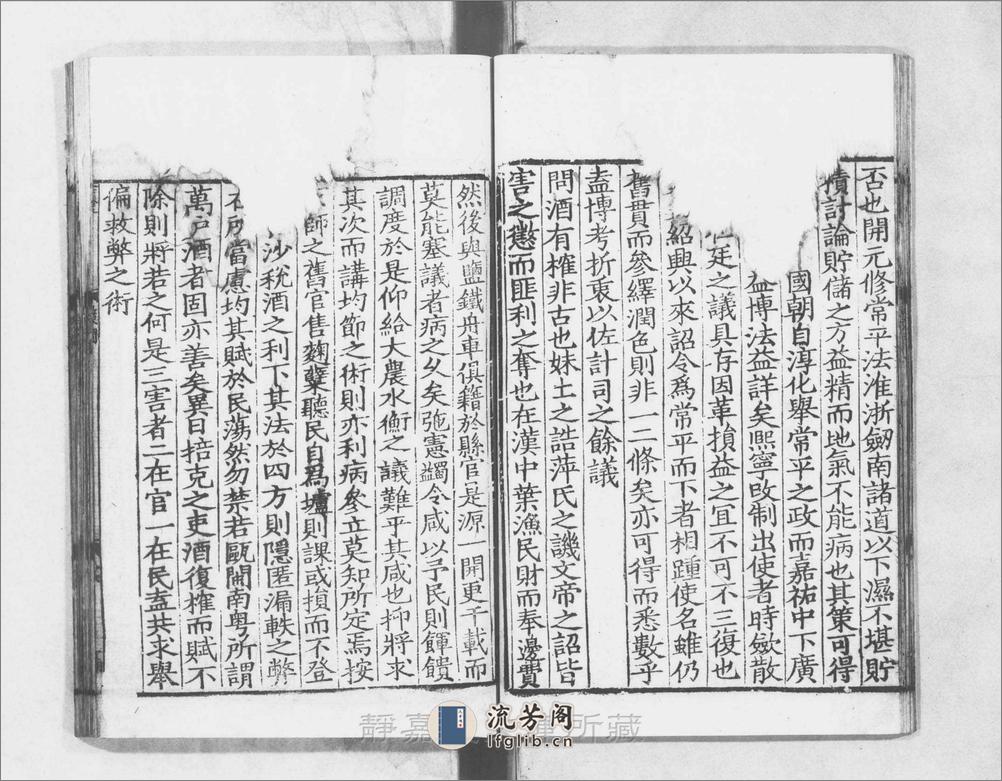 否也開元修常平法淮浙劒南諸道以下濕不堪貯
積計論貯儲之方益精而地氣不能病也其策可得
國朝自淳化舉常平之政而嘉祐中下廣
益博法益詳矣熙寧改制出使者時斂散
廷之議具存因革損益之宜不可不三復也
紹興以來詔令爲常平而下者相踵使名雖仍
舊貫而參繹潤色則非一二條矣亦可得而悉數乎
盍博考折衷以佐計司之餘議
問酒有榷非古也妹土之誥萍氏之譏文帝之詔皆
害之懲而匪利之奪也在漢中葉漁民財而奉邊費
然後與鹽鐵舟車俱籍於縣官是源一開更千載而
莫能塞議者病之乆矣弛憲蠲令咸以予民則餫饋
調度於是仰給大農水衡之議難乎其咸也抑將求
其次而講均節之術則亦利病參立莫知所定焉按
師之舊官售麴糵聽民自爲壚則課或損而不登
沙稅酒之利下其法於四方則隱匿漏軼之弊
不可當慮均其賦於民蕩然勿禁若甌閩南粤所謂
萬户酒者固亦善矣異日掊克之吏酒復榷而賦不
除則將若之何是三害者二在官一在民盍共求舉
偏救弊之術
靜嘉 所藏
流芳阁
lfglib.cn